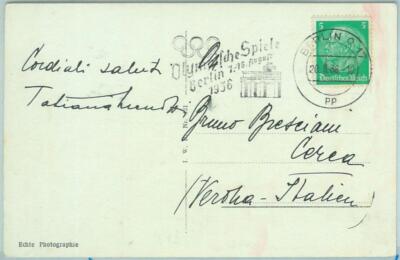 Cordiali saluti
Olympische Spiele
Berlin 1.-16. August
1936
BERLIN
pp
5 5
Deutsches Reich
Bruno Bresciani
Cerea
(Verona - Italien)
Echte Photographie